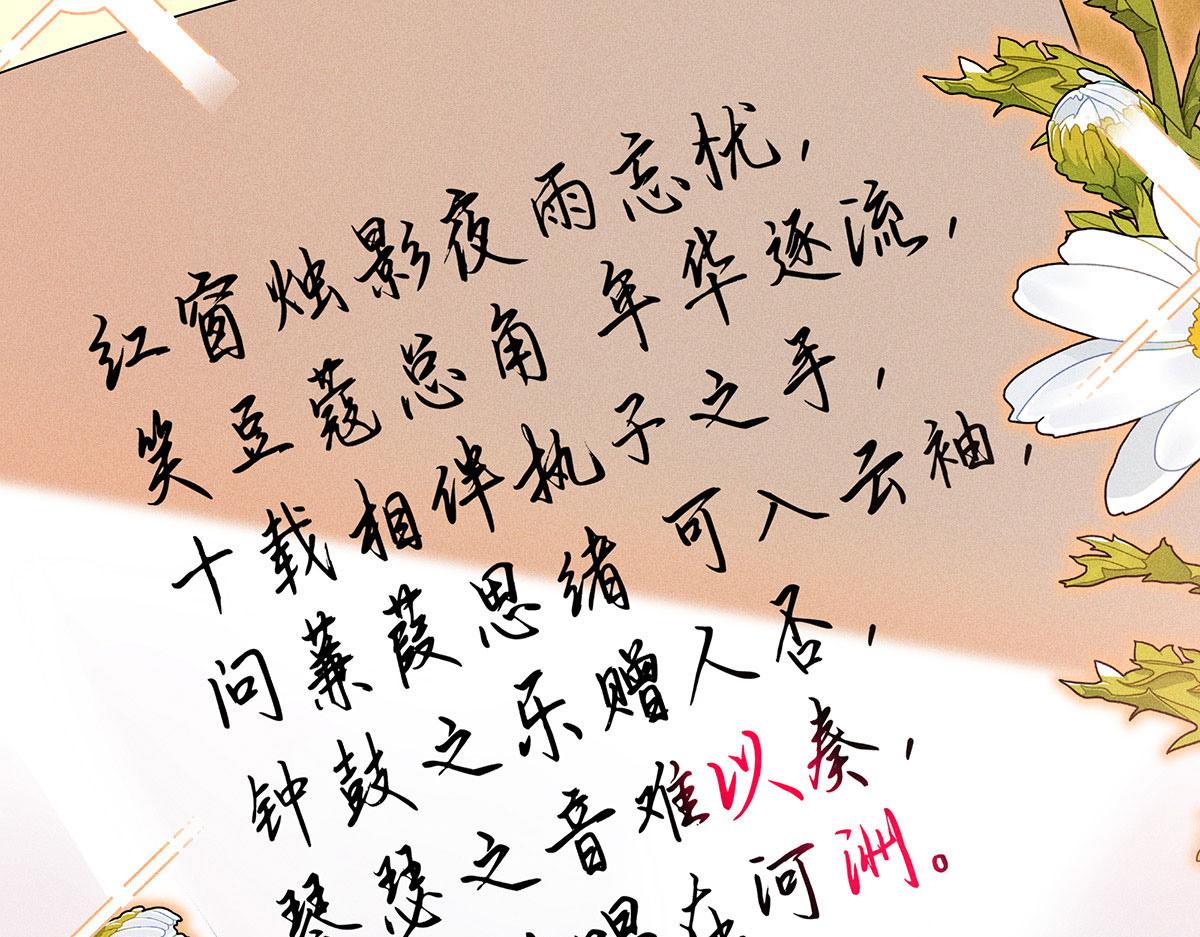 红窗烛影夜雨忘忧，
笑豆蔻总角年华逐流，
十载相伴执子之手，
问蒹葭思绪可入云袖，
钟鼓之乐赠人否，
琴瑟之音难以奏，
在河洲。